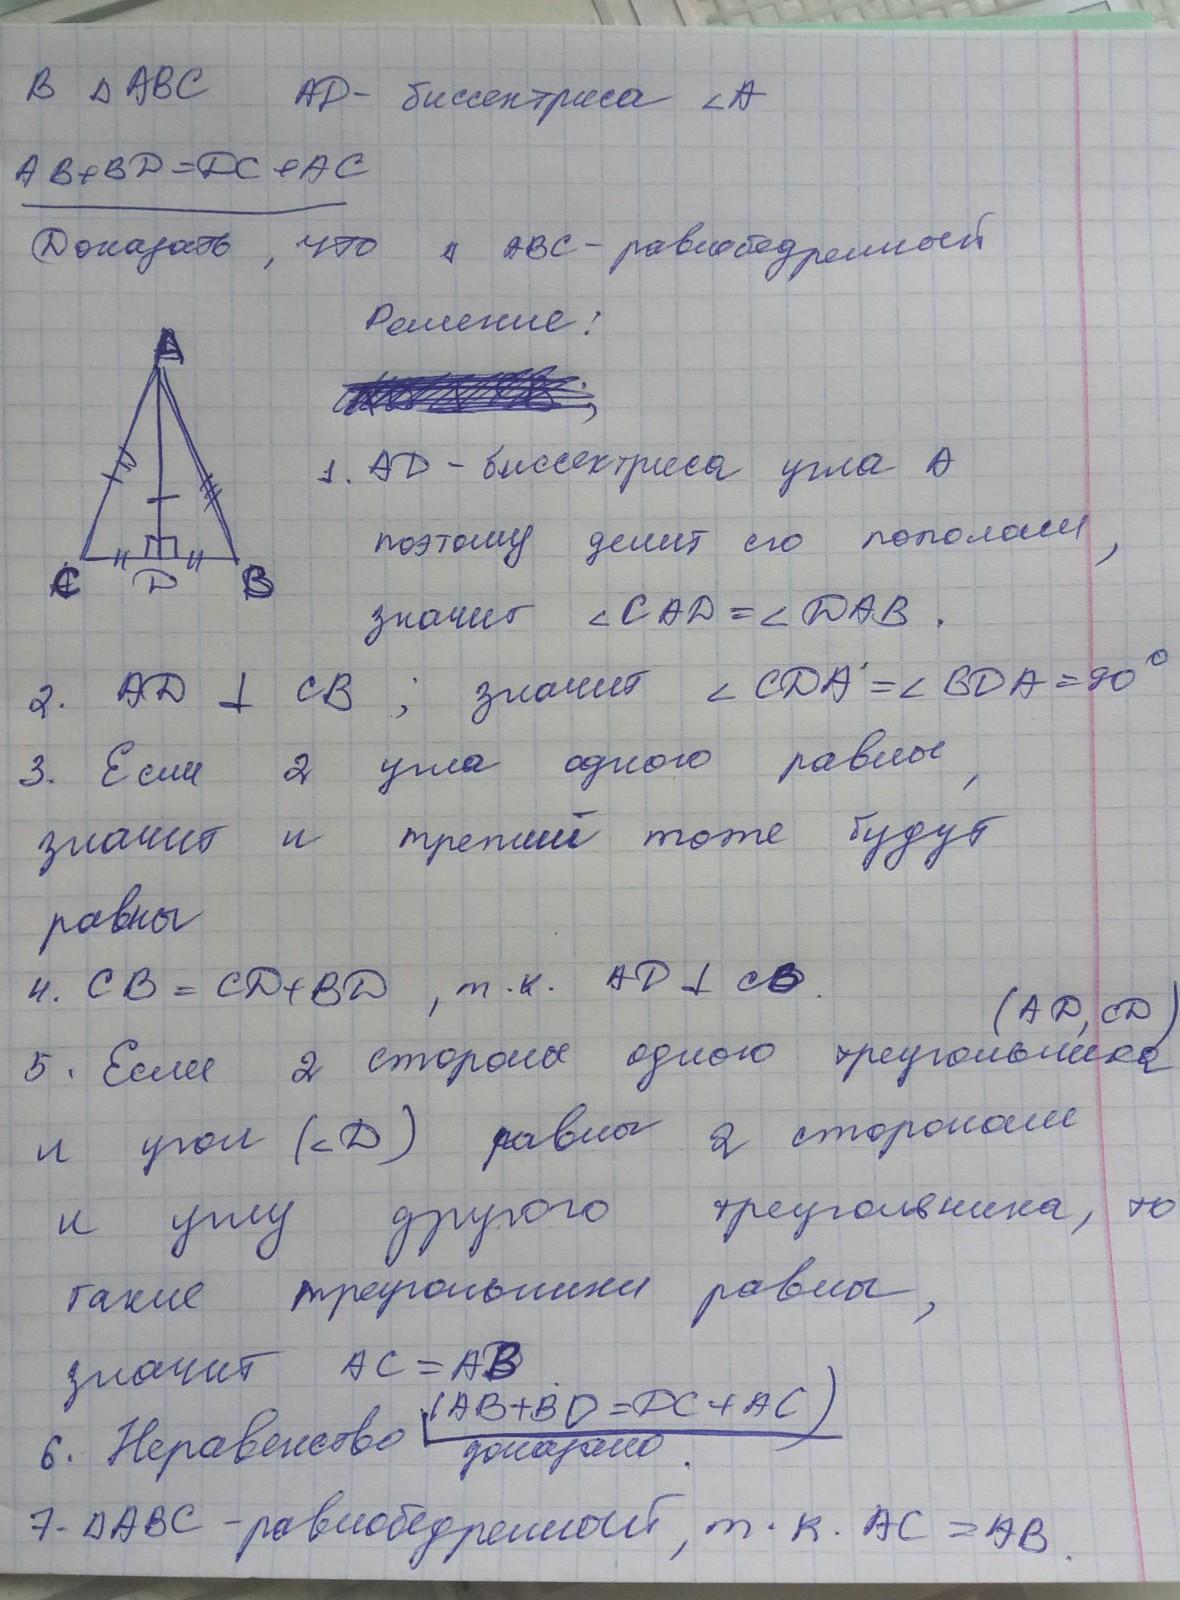 В △ ABC AD - биссектриса ∠A
AB+BD=DC+AC
Доказать, что △ ABC - равнобедренный
Решение:
A
C D B
1. AD - биссектриса угла A
поэтому делит его пополам,
значит ∠CAD=∠DAB.
2. AD ⊥ CB ; значит ∠CDA=∠BDA=90°
3. Если 2 угла одного равны,
значит и третий тоже будут
равны
4. CB = CD+BD, т.к. AD ⊥ CB.
(AD, CD)
5. Если 2 стороны одного треугольника
и угол (∠D) равны 2 сторонам
и углу другого треугольника, то
такие треугольники равны,
значит AC = AB
6. Неравенство (AB+BD=DC+AC)
доказано.
7. △ABC - равнобедренный, т.к. AC = AB.